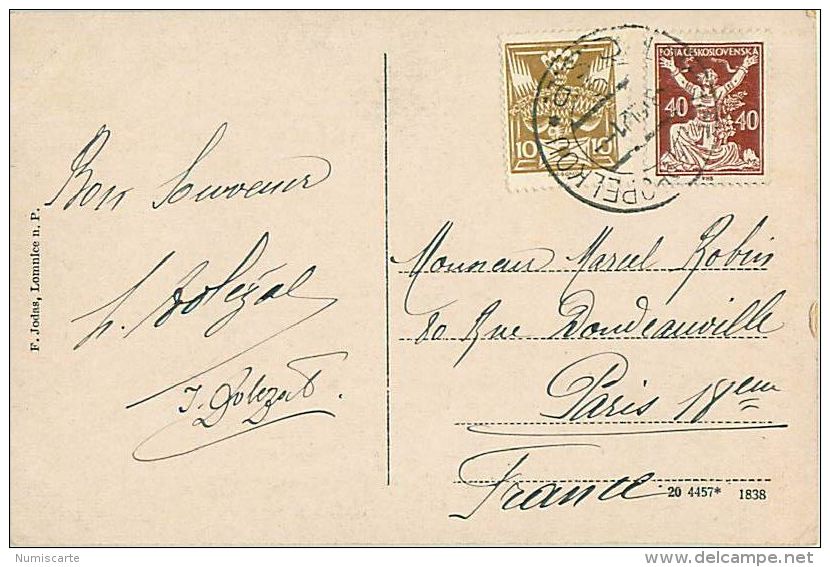 Bon Souvenir
L. Doležal
J. Doležal.
F. Jodas, Lomnice n. P.
10 10
POŠTA ČESKOSLOVENSKÁ
40 40
Monsieur Marcel Robin
80 Rue Doudeauville
Paris 18em
France.
20 4457* 1838
Numiscarte
delcampe.net